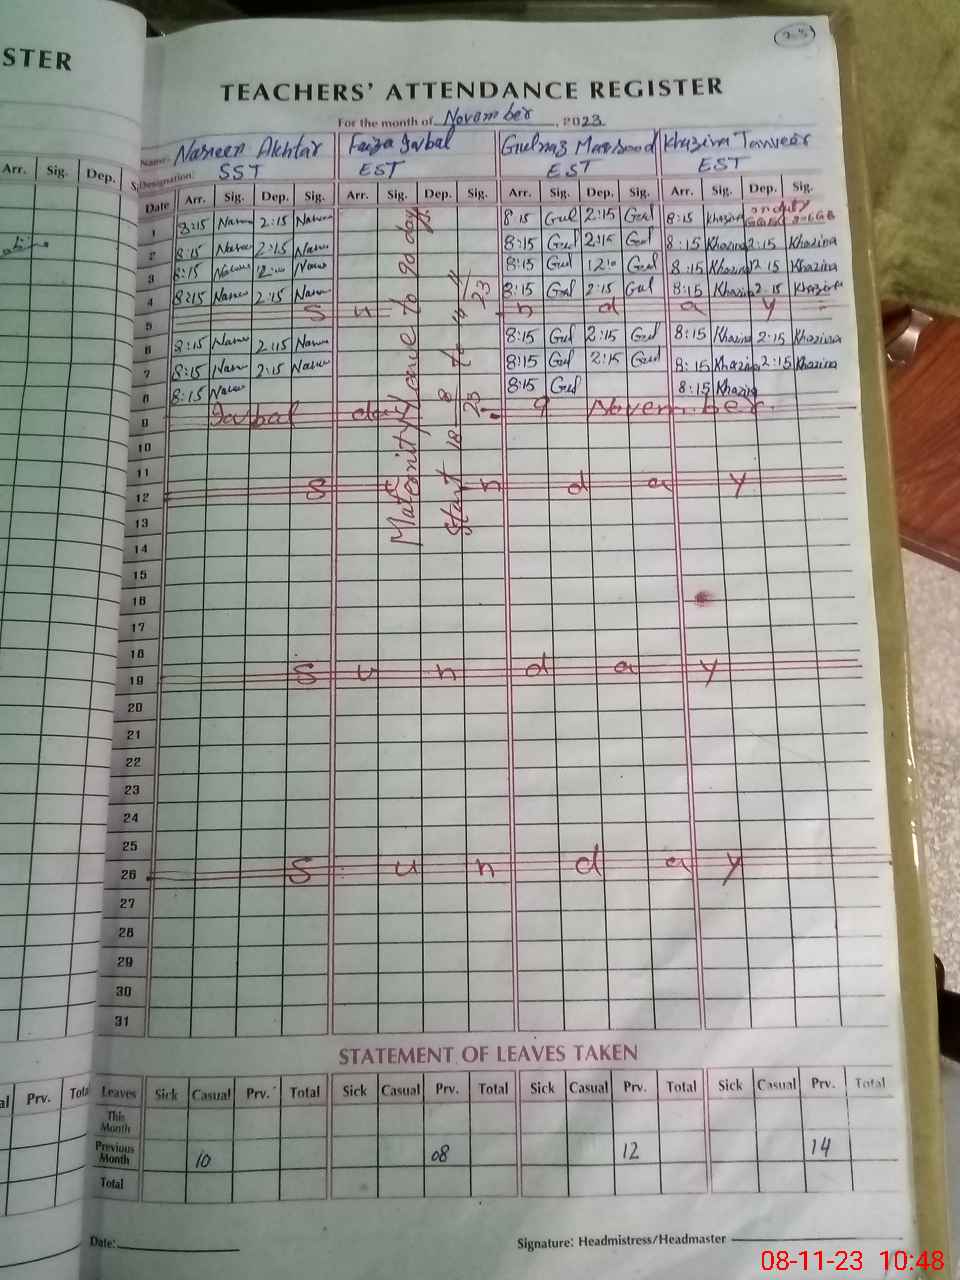 STER
TEACHERS' ATTENDANCE REGISTER
For the month of November, 2023
Name: Nasreen Akhtar Faiza Iqbal Gulnaz Maqsood Khazina Tanveer
Designation: SST EST EST EST
Arr. Sig. Dep. S
Date Arr. Sig. Dep. Sig. Arr. Sig. Dep. Sig. Arr. Sig. Dep. Sig. Arr. Sig. Dep. Sig.
1 8:15 2:15 8:15 Gul 2:15 Gul 8:15 Khazina on duty
2 8:15 2:15 8:15 Gul 2:15 Gul 8:15 Khazina 2:15 Khazina
3 8:15 12:00 8:15 Gul 12:00 8:15 Khazina 12:15 Khazina
4 8:15 2:15 8:15 Gul 2:15 Gul 8:15 Khazina 2:15 Khazina
5 S u n d a y
6 8:15 2:15 8:15 Gul 2:15 Gul 8:15 Khazina 2:15 Khazina
7 8:15 2:15 8:15 Gul 2:15 Gul 8:15 Khazina 2:15 Khazina
8 8:15 8:15 Gul 8:15 Khazina
9 Iqbal day 9 November
Maternity Leave to 90 days
Start 18
10
11
12 S n d a y
13
14
15
16
17
18
19 S u n d a y
20
21
22
23
24
25
26 S u n d a y
27
28
29
30
31
STATEMENT OF LEAVES TAKEN
al Prv. Total
Leaves Sick Casual Prv. Total Sick Casual Prv. Total Sick Casual Prv. Total Sick Casual Prv. Total
This Month
Previous Month 10 08 12 14
Total
Date:
Signature: Headmistress/Headmaster
08-11-23 10:48